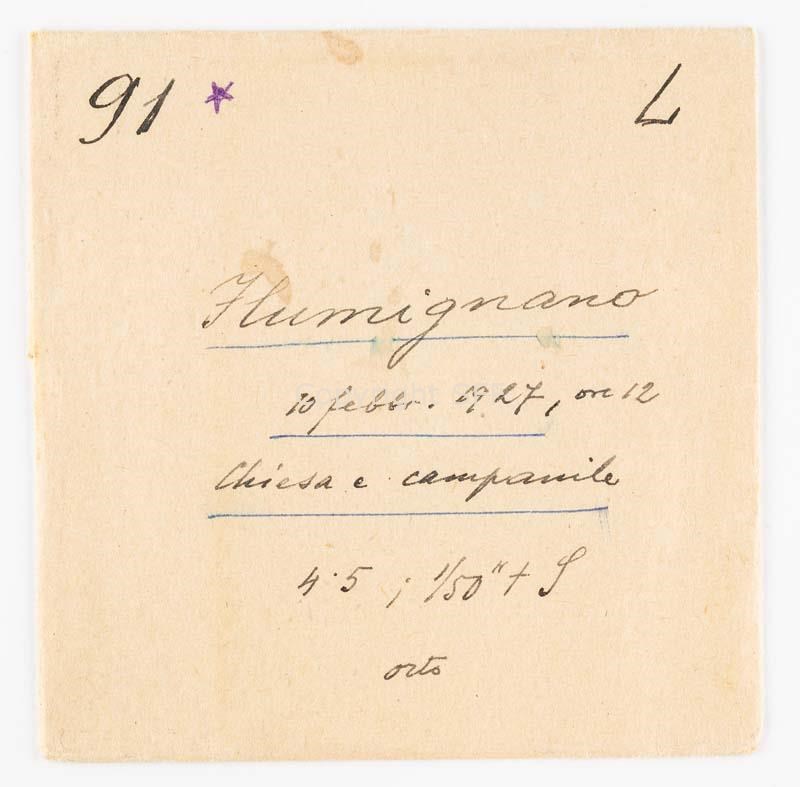 91 * L
Flumignano
10 febbr. 1927, ore 12
Chiesa e campanile
4·5 ; 1/50" + S
orto